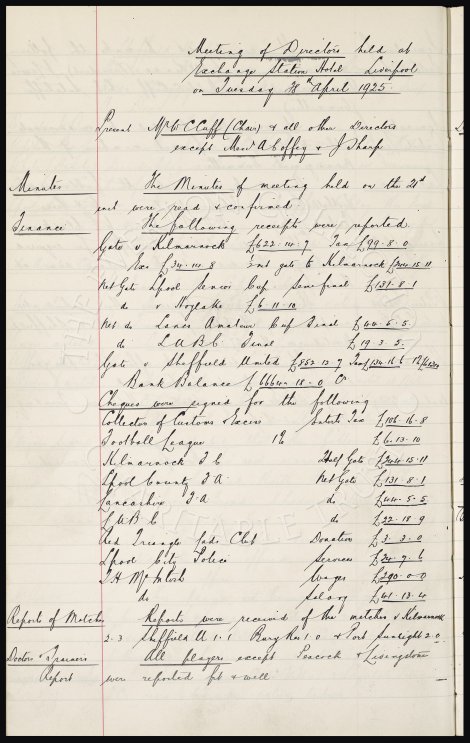 Meeting of Directors held at
Exchange Station Hotel Liverpool
on Tuesday 28th April 1925.
Present Mr W C Cuff (Chair) & all other Directors
except Messrs A Coffey & J Sharp
Minutes The Minutes of meeting held on the 21st
inst were read & confirmed.
Finance The following receipts were reported.
Gate v Kilmarnock £622.14.7 Tax £99.8.0
Exs £34.14.8 ½ net gate to Kilmarnock £244.15.11
Net Gate Lpool Senior Cup Semi final £131.8.1
do v Hoylake £6.11.10
Net do Lancs Amateur Cup Final £44.5.5.
do L.A.B.C. Final £19.3.5.
Gate v Sheffield United £852.13.7 Tax £134.16.6
Bank Balance £6664.18.0 Cr
Cheques were signed for the following
Collector of Customs & Excise Entert Tax £106.16.8
Football League 1% £6.13.10
Kilmarnock F C Half Gate £244.15.11
Lpool County F.A. Net Gate £131.8.1
Lancashire F.A. do £44.5.5
L A B C do £22.18.9
Red Triangle Lads Club Donation £3.3.0
Lpool City Police Services £24.7.6
T H McIntosh Wages £290.0.0
do Salary £41.13.4
Reports of Matches Reports were received of the matches v Kilmarnock
2-3 Sheffield U 1-1 Bury Res 1-0 & Port Sunlight 2-0
Doctors & Trainers All players except Peacock & Livingstone
Report were reported fit & well